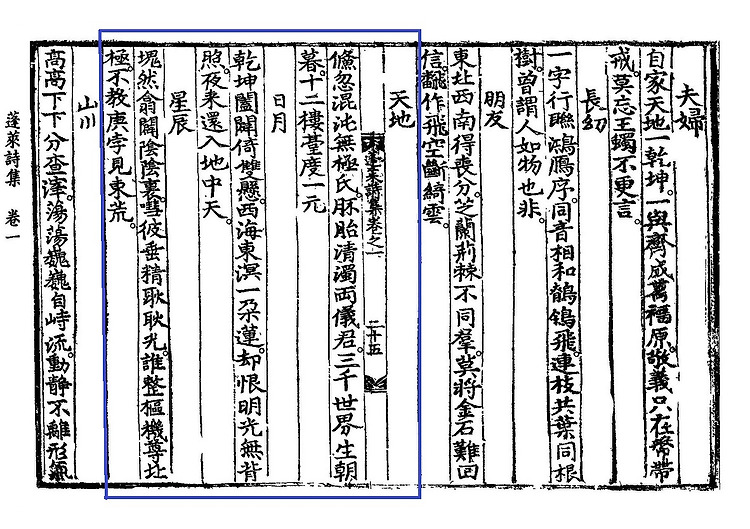 夫婦
自家天地一乾坤。一與齊成萬福原。敬義只在幣帶
戒。莫忘王蠋不更言。
長幼
一字行聯鴻鴈序。同音相和鶺鴒飛。連枝共葉同根
樹。曾謂人如物也非。
朋友
東北西南得喪分。芝蘭荊棘不同羣。莫將金石難回
信。飜作飛空斷綺雲。
蓬萊詩集卷之一 二十五
天地
儵忽混沌無極氏。胚胎清濁両儀君。三千世界生朝
暮。十二樓䑓度一元
日月
乾坤闔闢倚雙懸。西海東溟一朶蓮。却恨明光無背
照。夜来還入地中天。
星辰
塊然翕闢陰陰裏。彗彼垂精耿耿光。誰整樞機尊北
極。不教庚孛見東荒。
山川
高高下下分查滓。蕩蕩巍巍自峙流。動靜不離形氣
蓬萊詩集 卷一